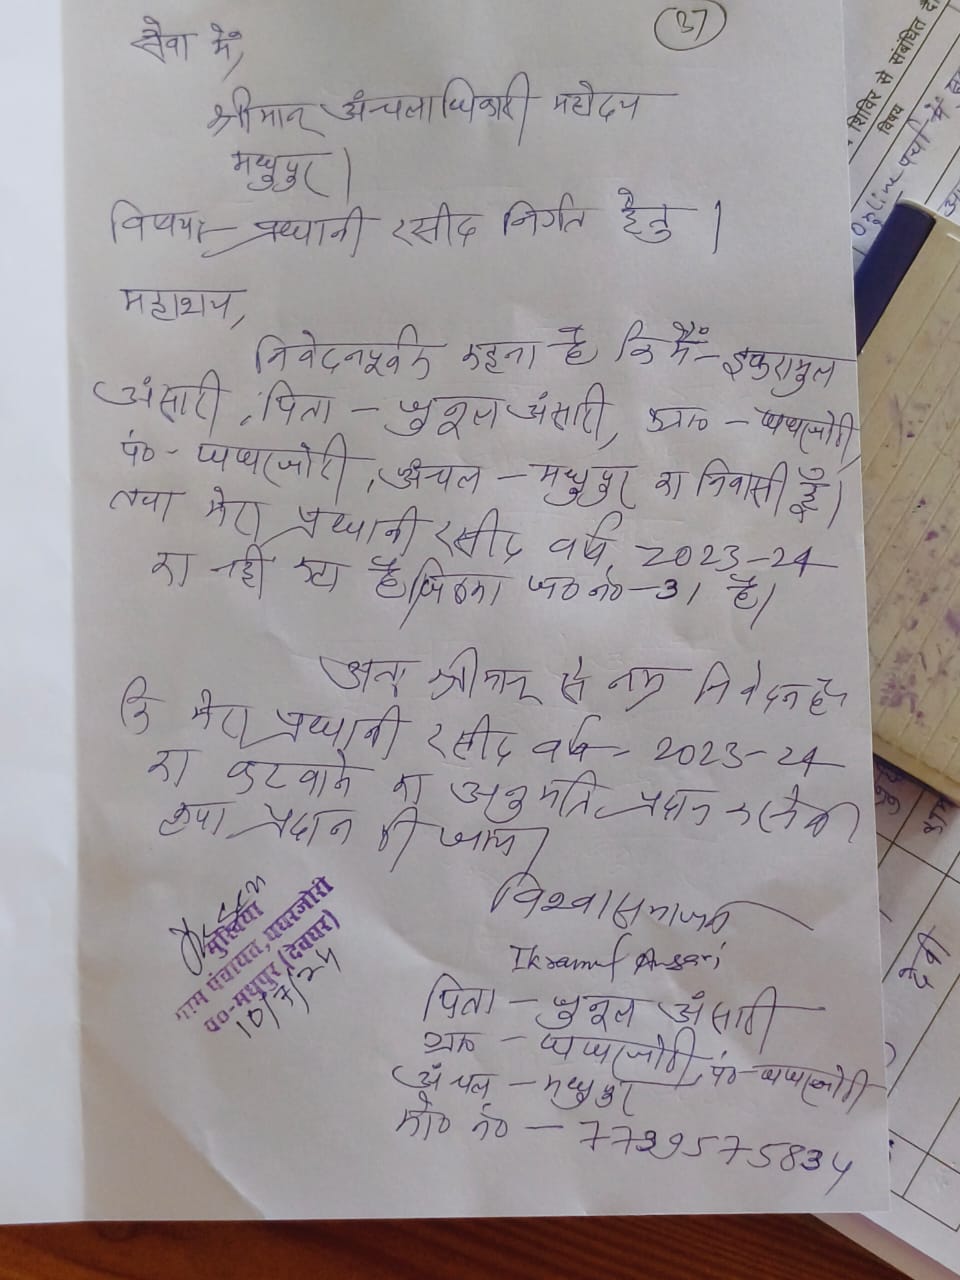 37
सेवा में,
श्रीमान् अंचलाधिकारी महोदय
मधुपुर।
विषय:- प्रधानी रसीद निर्गत हेतु।
महाशय,
निवेदनपूर्वक कहना है कि मैं- इकरामुल
अंसारी, पिता - अंसारी, ग्रा० - पथरजोरी,
पं०- पथरजोरी, अंचल - मधुपुर का निवासी हूँ।
तथा मेरा प्रधानी रसीद वर्ष 2023-24
का नहीं कटा है जिसका ज०नं०-31 है।
अतः श्रीमान् से नम्र निवेदन है
कि मेरा प्रधानी रसीद वर्ष- 2023-24
का कटवाने का अनुमति प्रदान करने की
कृपा प्रदान की जाय।
विश्वासभाजन
Ikramul Ansari
पिता - अंसारी
ग्रा० - पथरजोरी, पं०- पथरजोरी
अंचल - मधुपुर
मो० नं० - 7739575834
मुखिया
ग्राम पंचायत, पथरजोरी
प्र०-मधुपुर (देवघर)
10/7/24
शिविर से संबंधित
विषय
Online पर्चा में
देवी